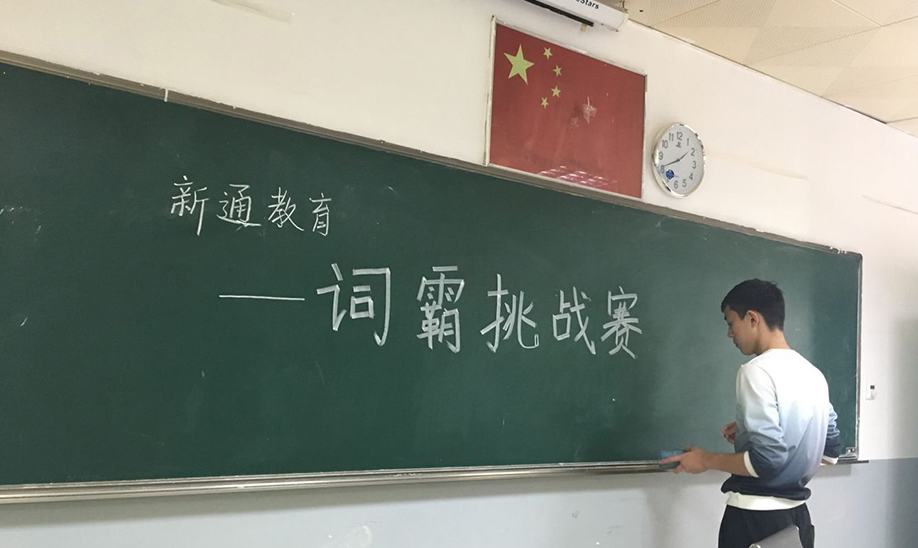 新通教育
—词霸挑战赛